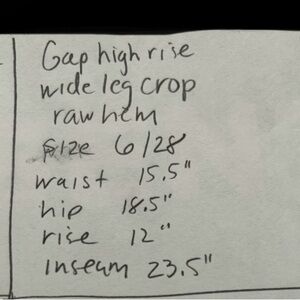 Gap high rise
wide leg crop
raw hem
size 6/28
waist 15.5"
hip 18.5"
rise 12"
inseam 23.5"